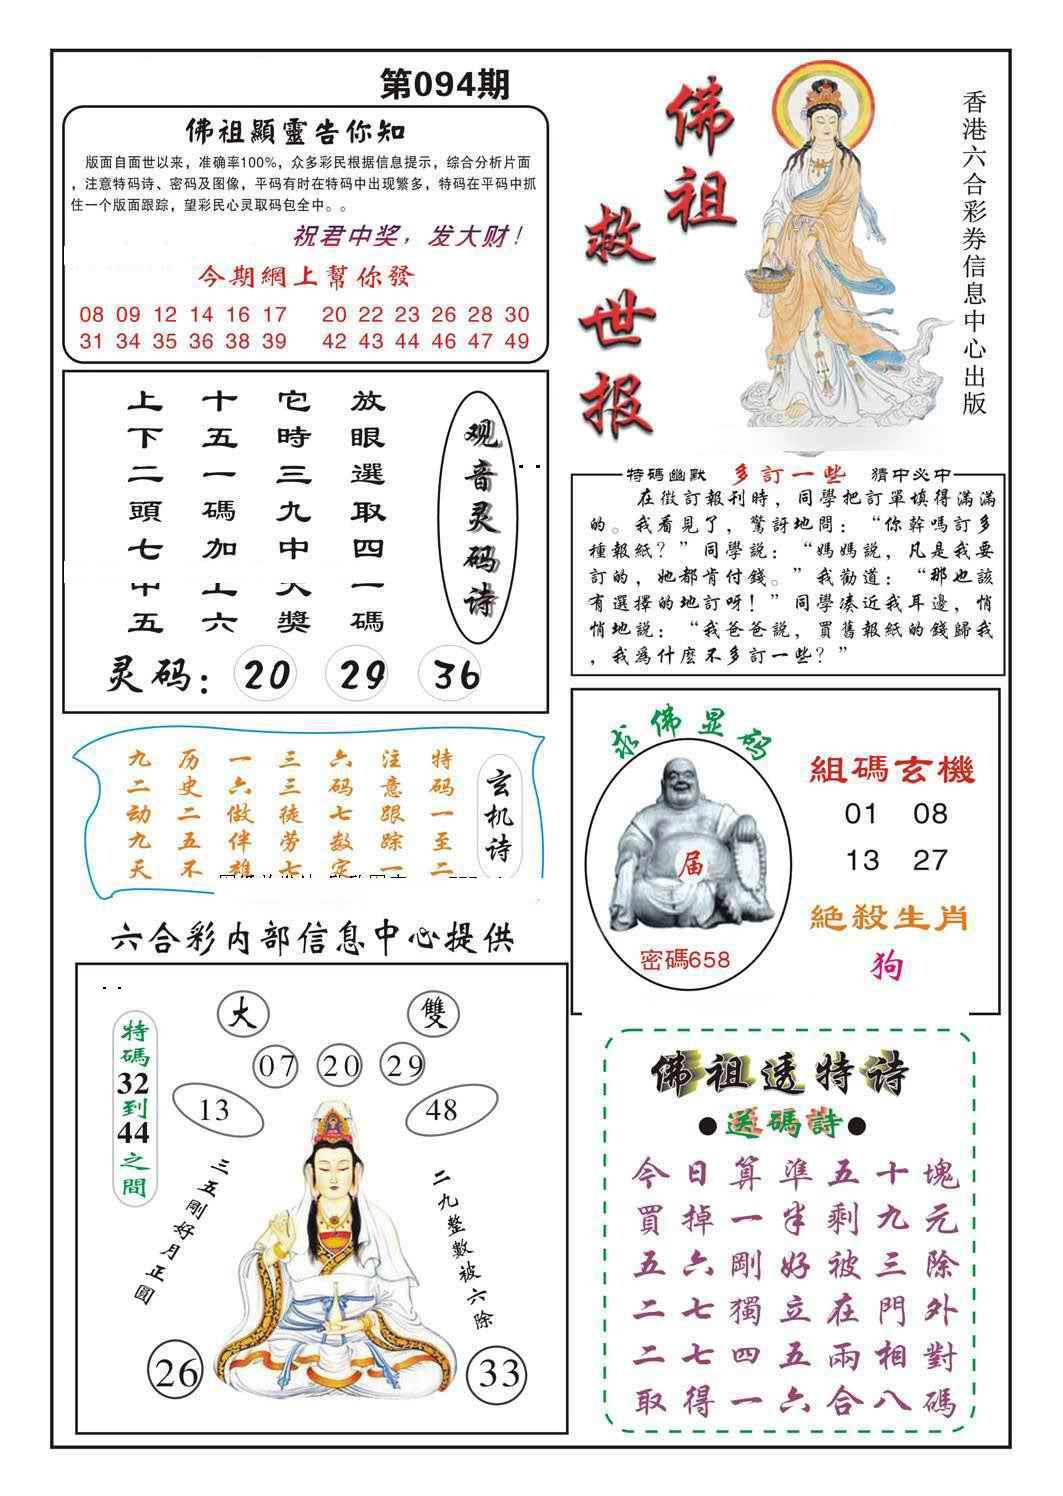 第094期
佛祖顯靈告你知
版面自面世以来，准确率100%，众多彩民根据信息提示，综合分析片面
，注意特码诗、密码及图像，平码有时在特码中出现繁多，特码在平码中抓
住一个版面跟踪，望彩民心灵取码包全中。。
祝君中奖，发大财！
今期網上幫你發
08 09 12 14 16 17 20 22 23 26 28 30
31 34 35 36 38 39 42 43 44 46 47 49
佛祖
救世报
香港六合彩券信息中心出版
观音灵码诗
放眼選取四一碼
它時三九中大獎
十五一碼加上六
上下二頭七中五
灵码：20 29 36
特碼幽默 多訂一些 猜中必中
在徵訂報刊時，同學把訂單填得滿滿
的。我看見了，驚訝地問：“你幹嗎訂多
種報紙？”同學説：“媽媽説，凡是我要
訂的，她都肯付錢。”我勸道：“那也該
有選擇的地訂呀！”同學湊近我耳邊，悄
悄地説：“我爸爸説，買舊報紙的錢歸我
，我爲什麽不多訂一些？”
玄机诗
特码一至二
注意跟踪一
六码七数定
三三徒劳七
一六做伴雄
历史二五不
九二动九天
求佛显码
届
密碼658
組碼玄機
01 08
13 27
絶殺生肖
狗
六合彩内部信息中心提供
大 雙
07 20 29
13 48
特碼32到44之間
三五剛好月正圓
二九整數被六除
26 33
佛祖透特诗
●送碼詩●
今日算準五十塊
買掉一半剩九元
五六剛好被三除
二七獨立在門外
二七四五兩相對
取得一六合八碼